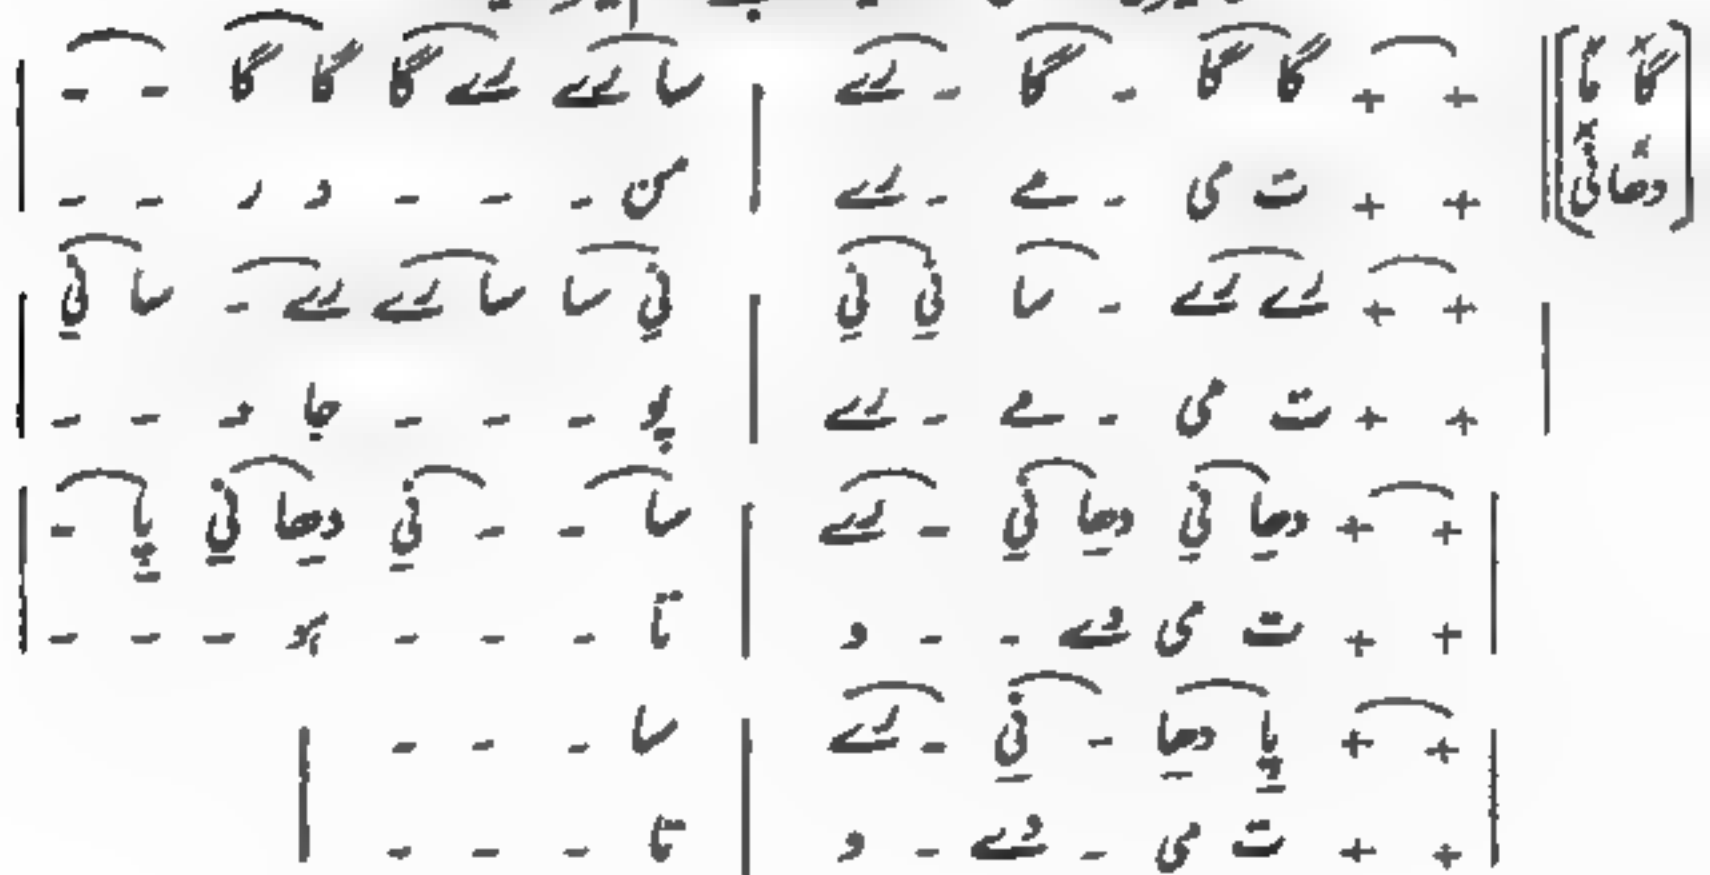 [گا ما] || + + گا گا - گا - رے | سا رے رے گا گا گا - - |
[دھا نی] || + + ت می - مے - رے | من - - - د ر - - |
| + + رے رے - سا نی نی | نی سا سا رے رے - سا نی |
| + + ت می - مے - رے | پو - - - جا و - - |
| + + دھا نی دھا نی - رے | سا - - نی دھا نی پا - |
| + + ت می دے - - و | تا - - - ہر - - - |
| + + پا دھا - نی - رے | سا - - - |
| + + ت می - دے - و | تا - - - |